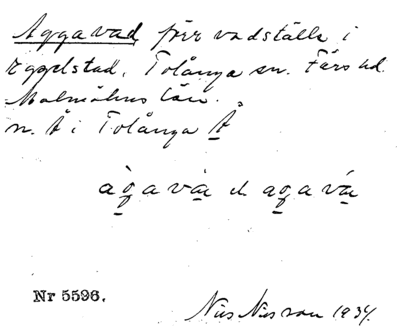 Aggavad förr vadställe i
Eggelstad, Tolånga sn. Färs hd.
Malmöhus län.
n. Å i Tolånga Å
àgavá el. agavá
Nr 5596.
Nils Nilsson 1934.